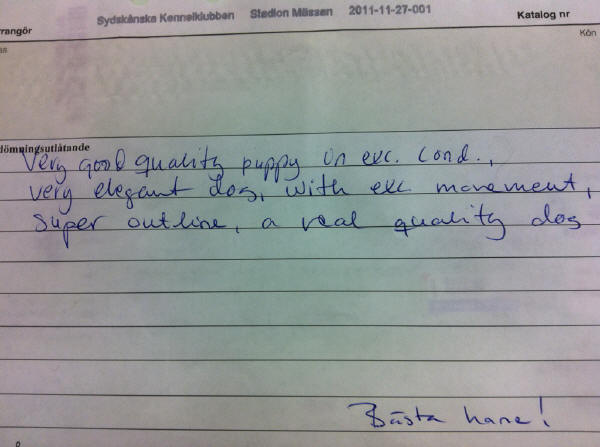 Sydskånska Kennelklubben Stadion Mässan 2011-11-27-001
rrangör
Katalog nr
Kön
dömningsutlåtande
Very good quality puppy in exc. cond.,
very elegant dog, with exc movement,
super outline, a real quality dog
Bästa hane!